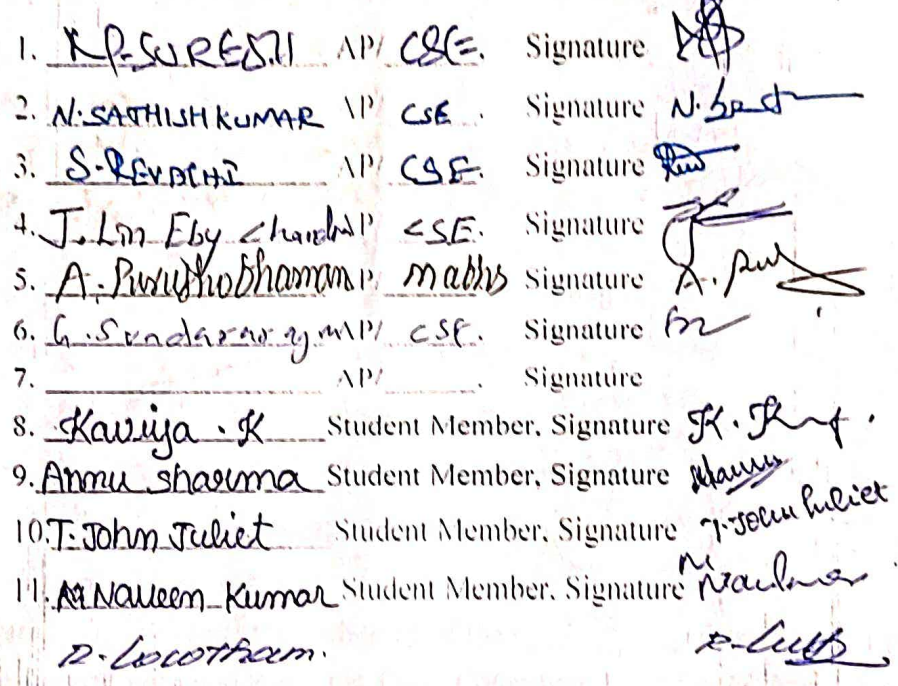 1. K.P. SURESH AP/ CSE. Signature
2. N. SATHISH KUMAR AP/ CSE. Signature
3. S. REVATHI AP/ CSE. Signature
4. J. Lin Eby Chandra AP CSE. Signature
5. A. Purushothaman AP/ maths Signature A. Pur
6. G. Sundararajan AP/ CSE. Signature
7. AP/ . Signature
8. Kaviya . K Student Member, Signature K. K
9. Anmu sharma Student Member, Signature
10. T. John Juliet Student Member, Signature T. John Juliet
11. M Naveen Kumar Student Member, Signature